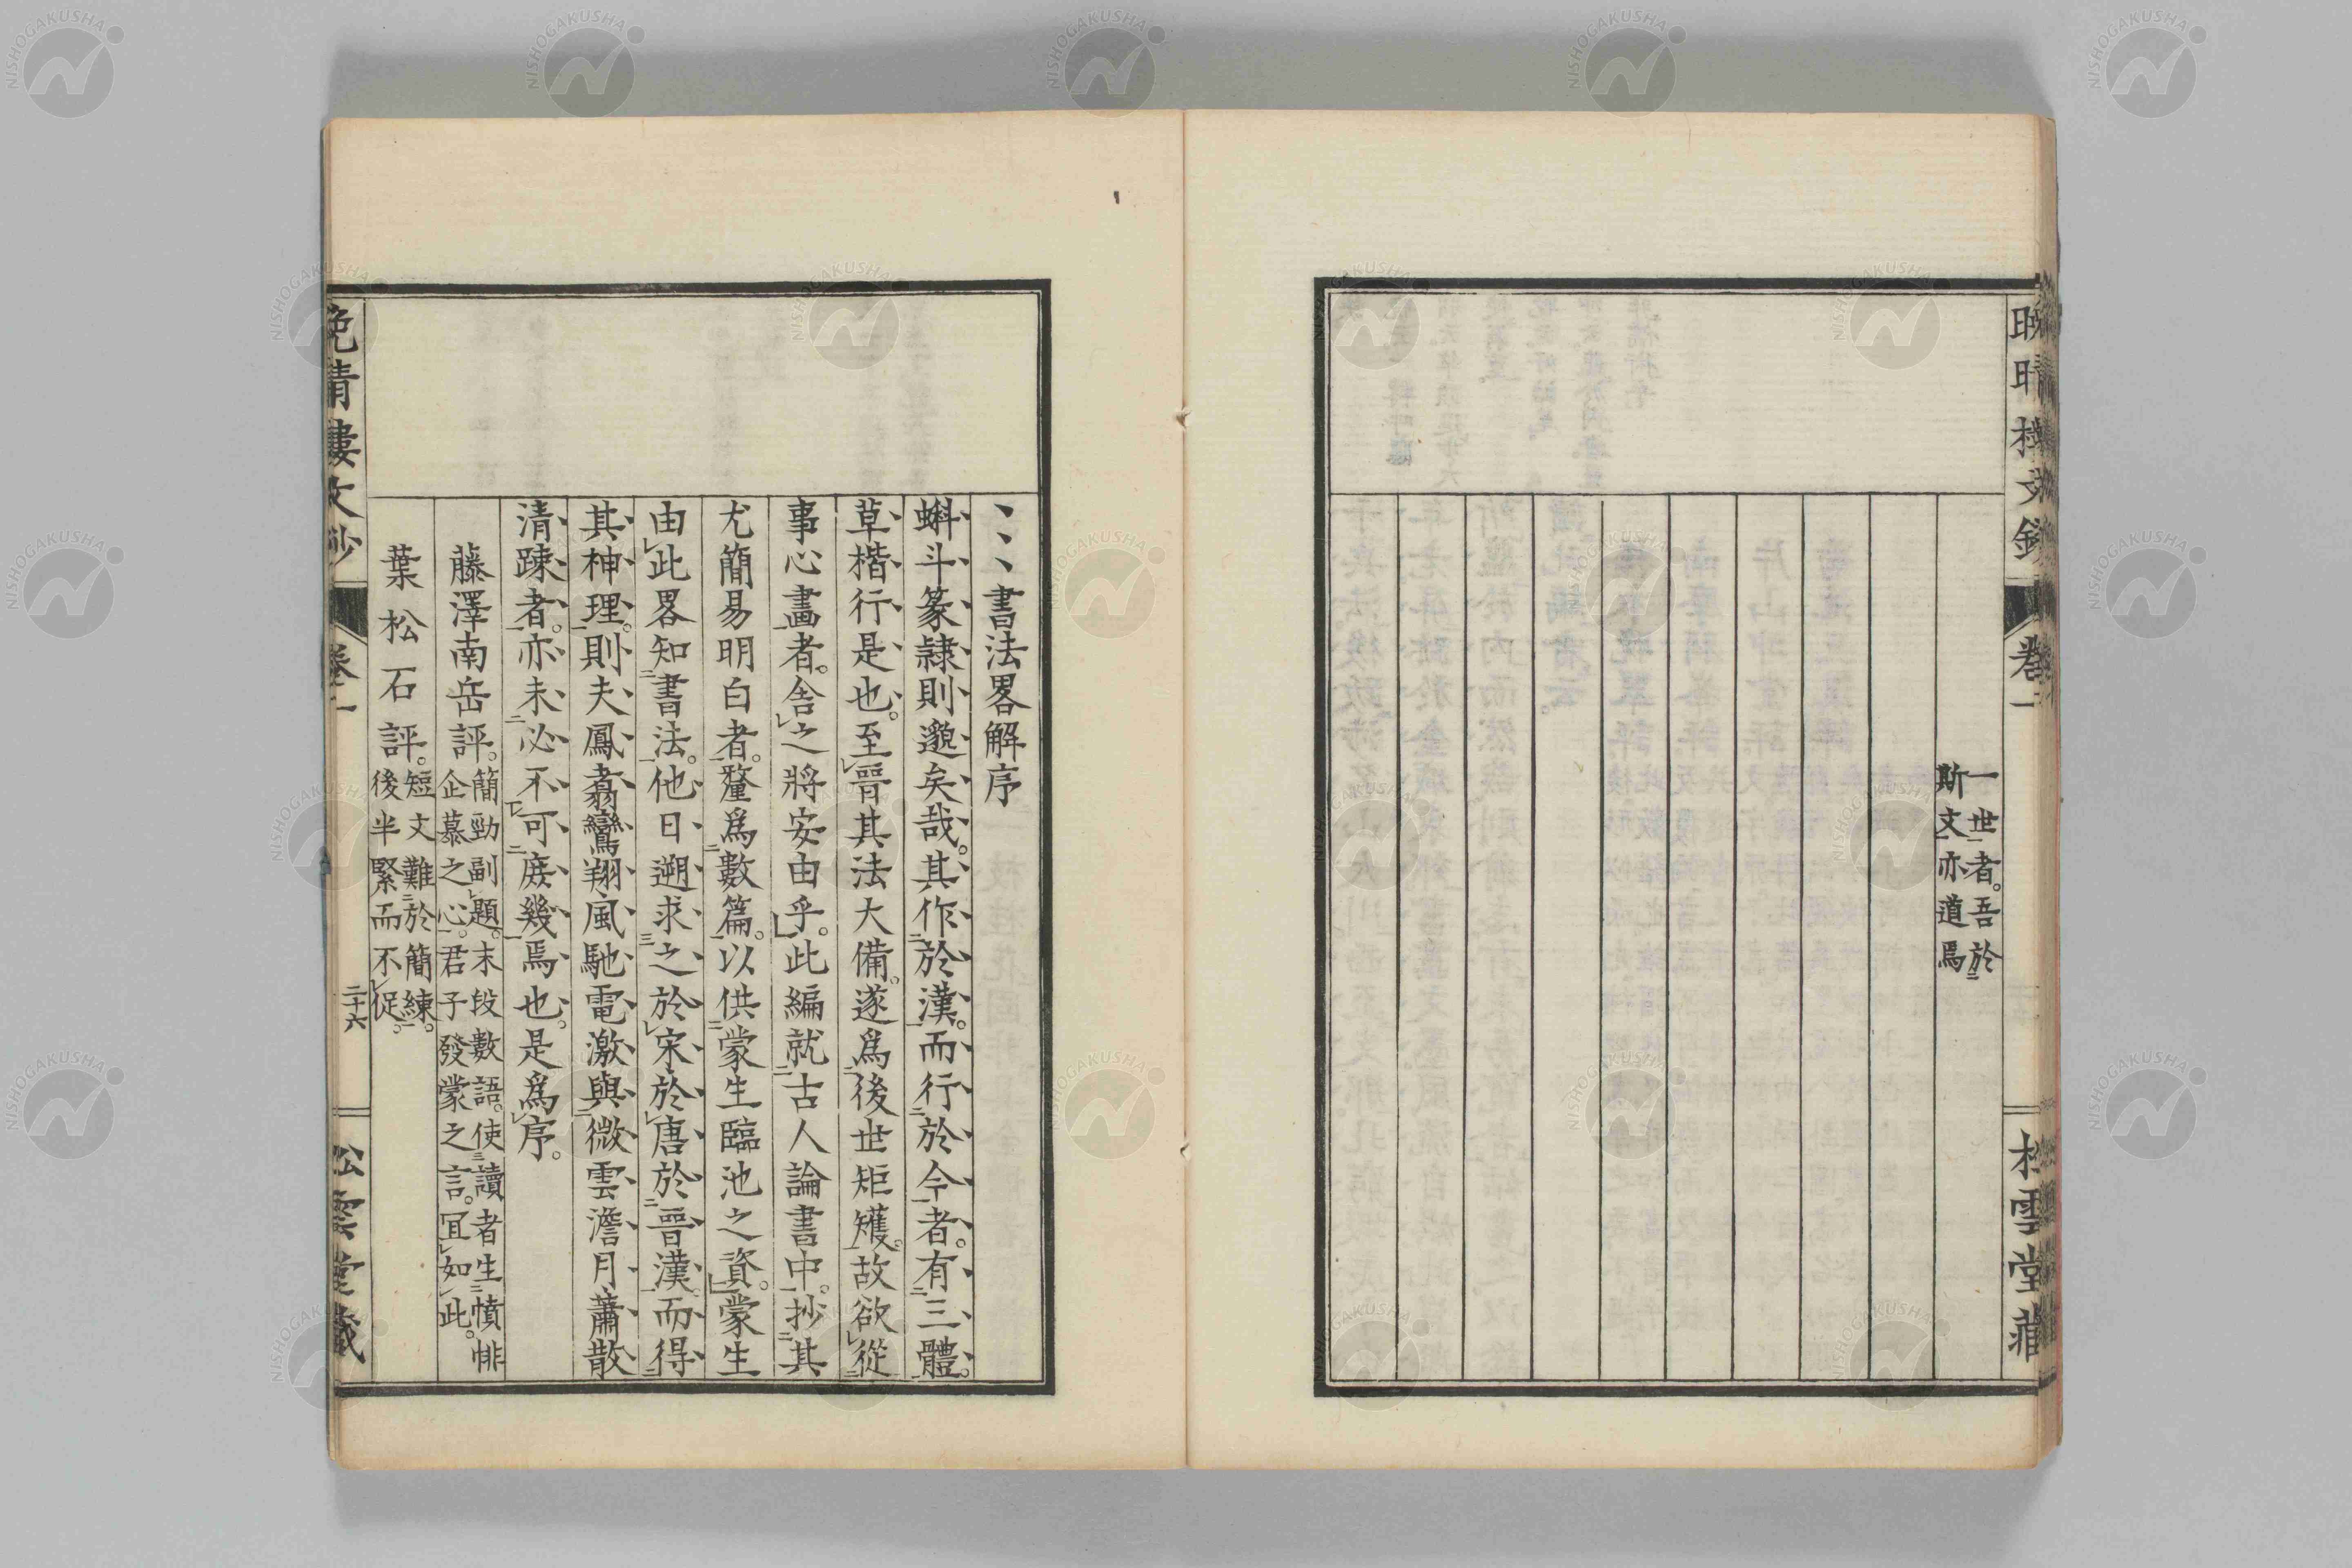 一世者。吾於
斯文亦道焉
卷二
書法畧解序
蝌斗篆隸則邈矣哉。其作於漢。而行於今者。有三體。
草楷行是也。至晉其法大備。遂爲後世矩矱。故欲從
事心畫者。舍之將安由乎。此編就古人論書中。抄其
尤簡易明白者。釐爲數篇。以供蒙生臨池之資。蒙生
由此畧知書法。他日遡求之於宋於唐於晉漢。而得
其神理。則夫鳳翥鸞翔風馳電激與微雲澹月蕭散
清疎者。亦未必不可庶幾焉也。是爲序。
藤澤南岳評。簡勁副題。末段數語。使讀者生憤悱
企慕之心。君子發蒙之言。冝如此。
葉松石評。短文難於簡練。
後半緊而不促。
晚晴樓文鈔
卷二
二十六
松雲堂藏
NISHOGAKUSHA